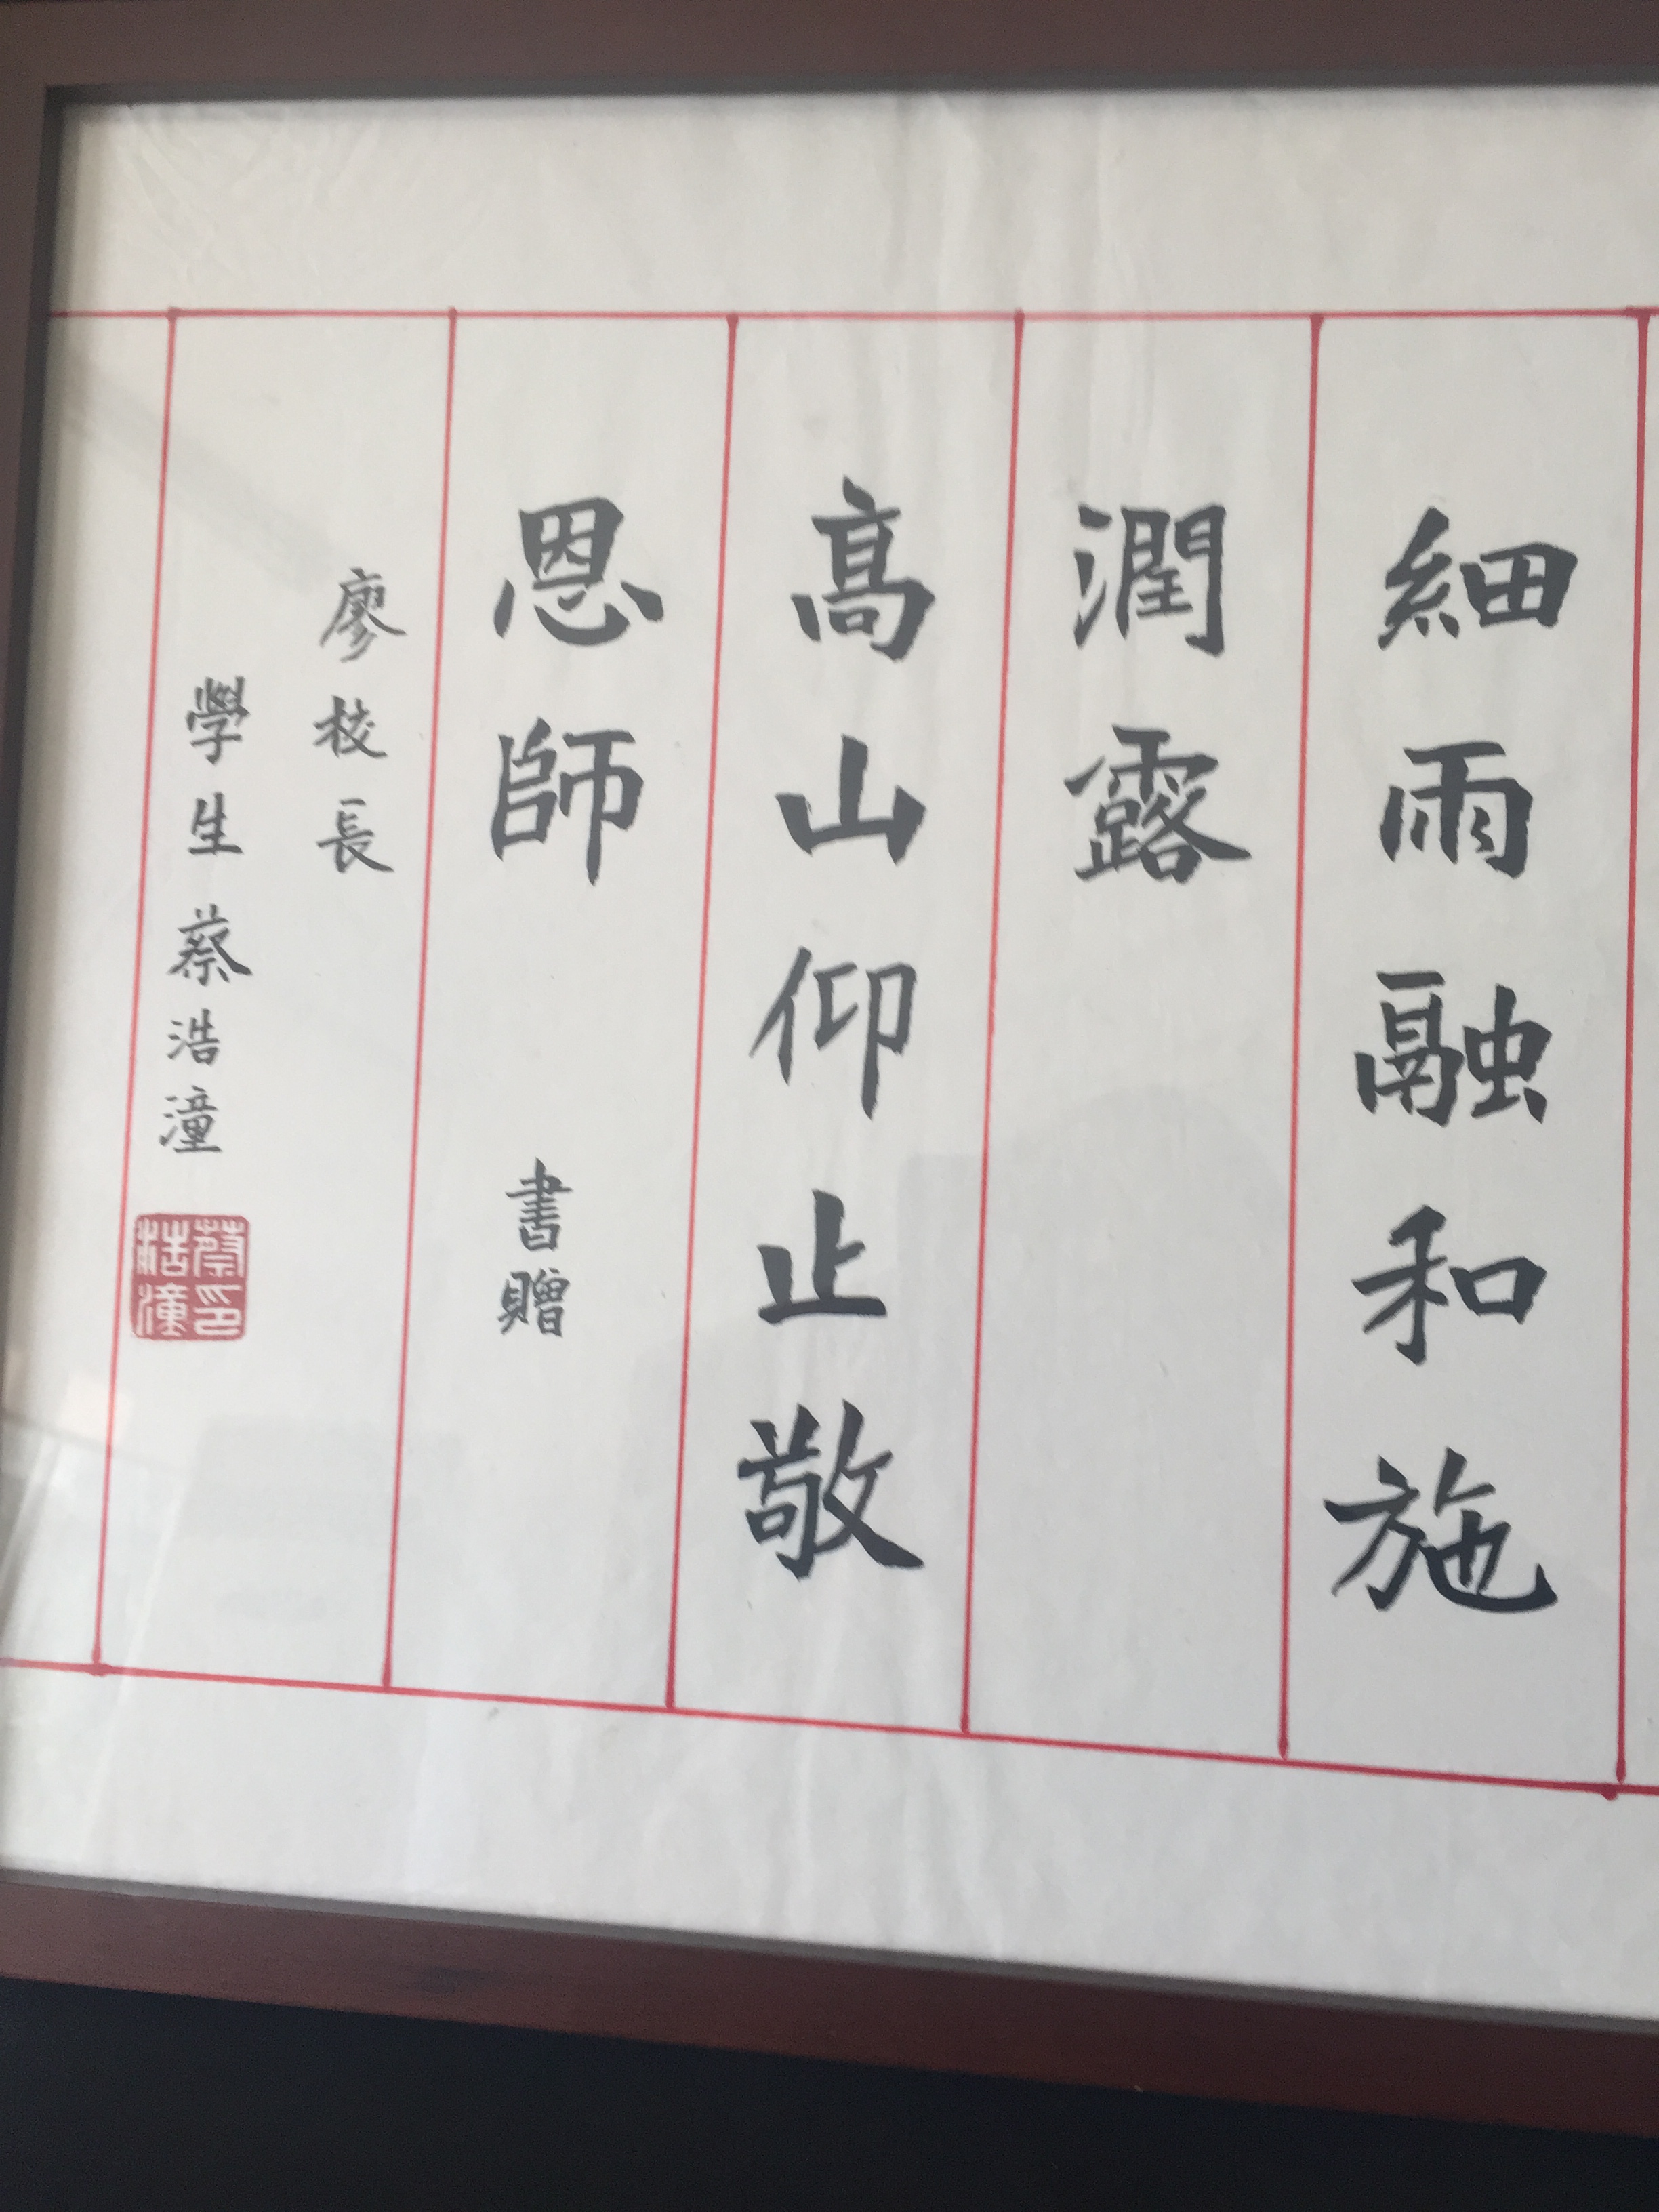 細雨融和施
潤露
高山仰止敬
恩師
書贈
廖校長
學生蔡浩潼
蔡印浩潼